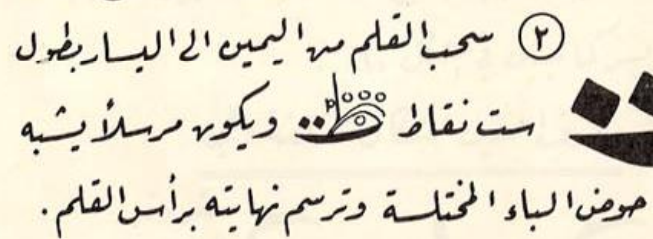 ٢ سحب القلم من اليمين الى اليسار بطول
ست نقاط ويكون مرسلاً يشبه
حوض الباء المختلسة وترسم نهايته برأس القلم.